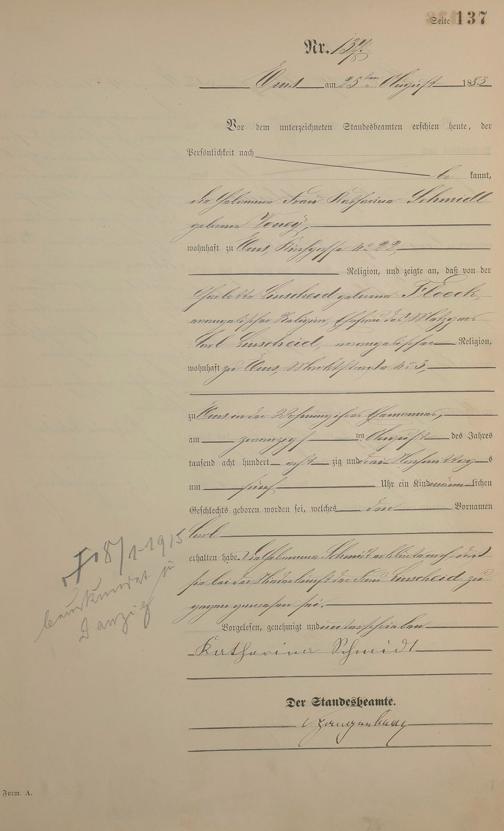 Seite 137
Nr. 137.
Ems am 25ten August 1883
Vor dem unterzeichneten Standesbeamten erschien heute, der
Persönlichkeit nach
be kannt,
die Hebamme Frau Katharina Schmidt
geborene
wohnhaft zu Ems, Kirchgasse No 22,
Religion, und zeigte an, daß von der
Linscheid geborene Floeck,
evangelischer Religion, Ehefrau des Metzgers
Carl Linscheid, evangelischer Religion,
wohnhaft zu Ems,
zu Ems in der Wohnung ihres Ehemannes,
am zwanzigsten August des Jahres
tausend acht hundert acht zig und drei Nachmittags
um fünf Uhr ein Kind männlichen
Geschlechts geboren worden sei, welches den Vornamen
Carl
erhalten habe. Die Hebamme Schmidt erklärte, daß
sie bei der Niederkunft der Frau Linscheid zu-
gegen gewesen sei.
Vorgelesen, genehmigt und unterschrieben
Katharina Schmidt
Der Standesbeamte.
† 18/1 1915
beurkundet in
Danzig
Form. A.